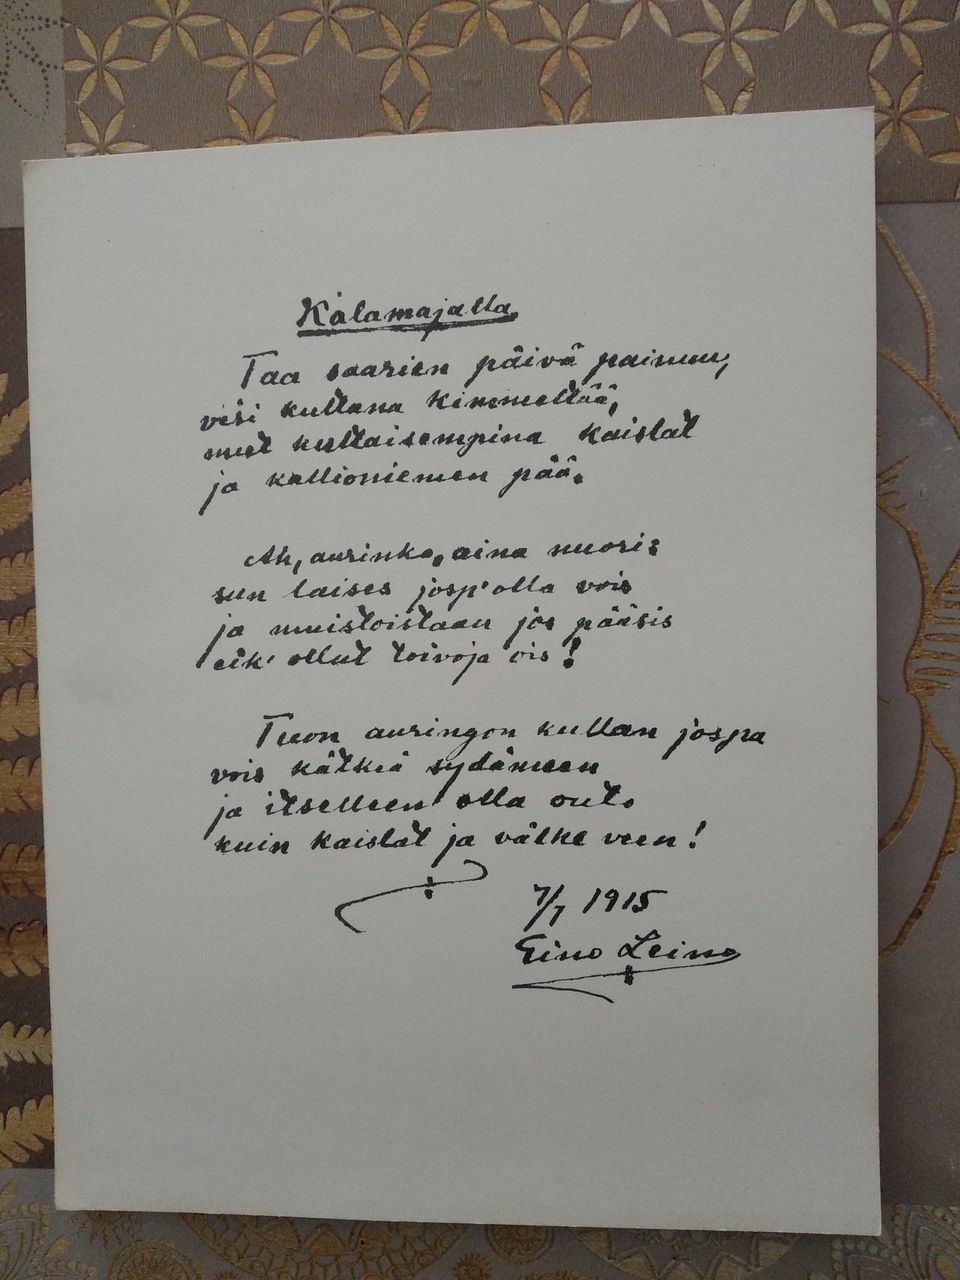 Kalamajalla
Taa saarien päivä painuu,
vesi kultana kimmeltää,
mut kultaisempina kaislat
ja kallioniemen pää.
Ah, aurinko, aina nuori:
sun laises josp' olla vois
ja muistoistaan jos pääsis
eik' ollut toivoja ois!
Tuon auringon kullan jospa
vois kätkeä sydämeen
ja itselleen olla outo
kuin kaislat ja välke veen!
7/7 1915
Eino Leino